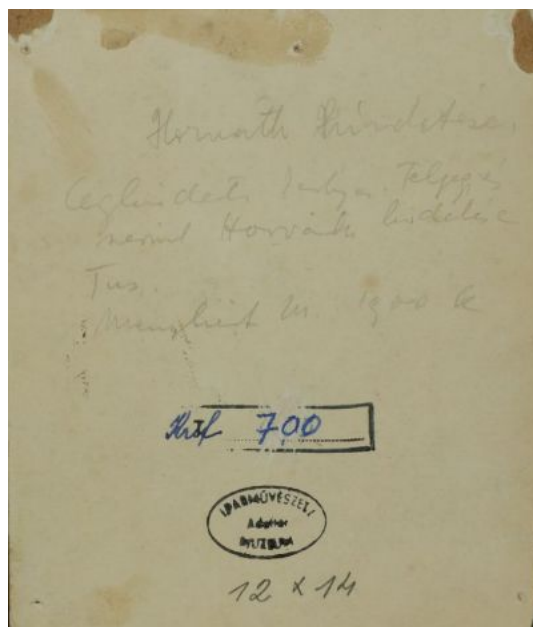 Horváth hirdetése.
Céghirdető
szerint Horváth hirdetése
Tus.
Menyhért M. 1900 k
Krtf 700
IPARMŰVÉSZETI
Adattár
MUZEUM
12 x 14